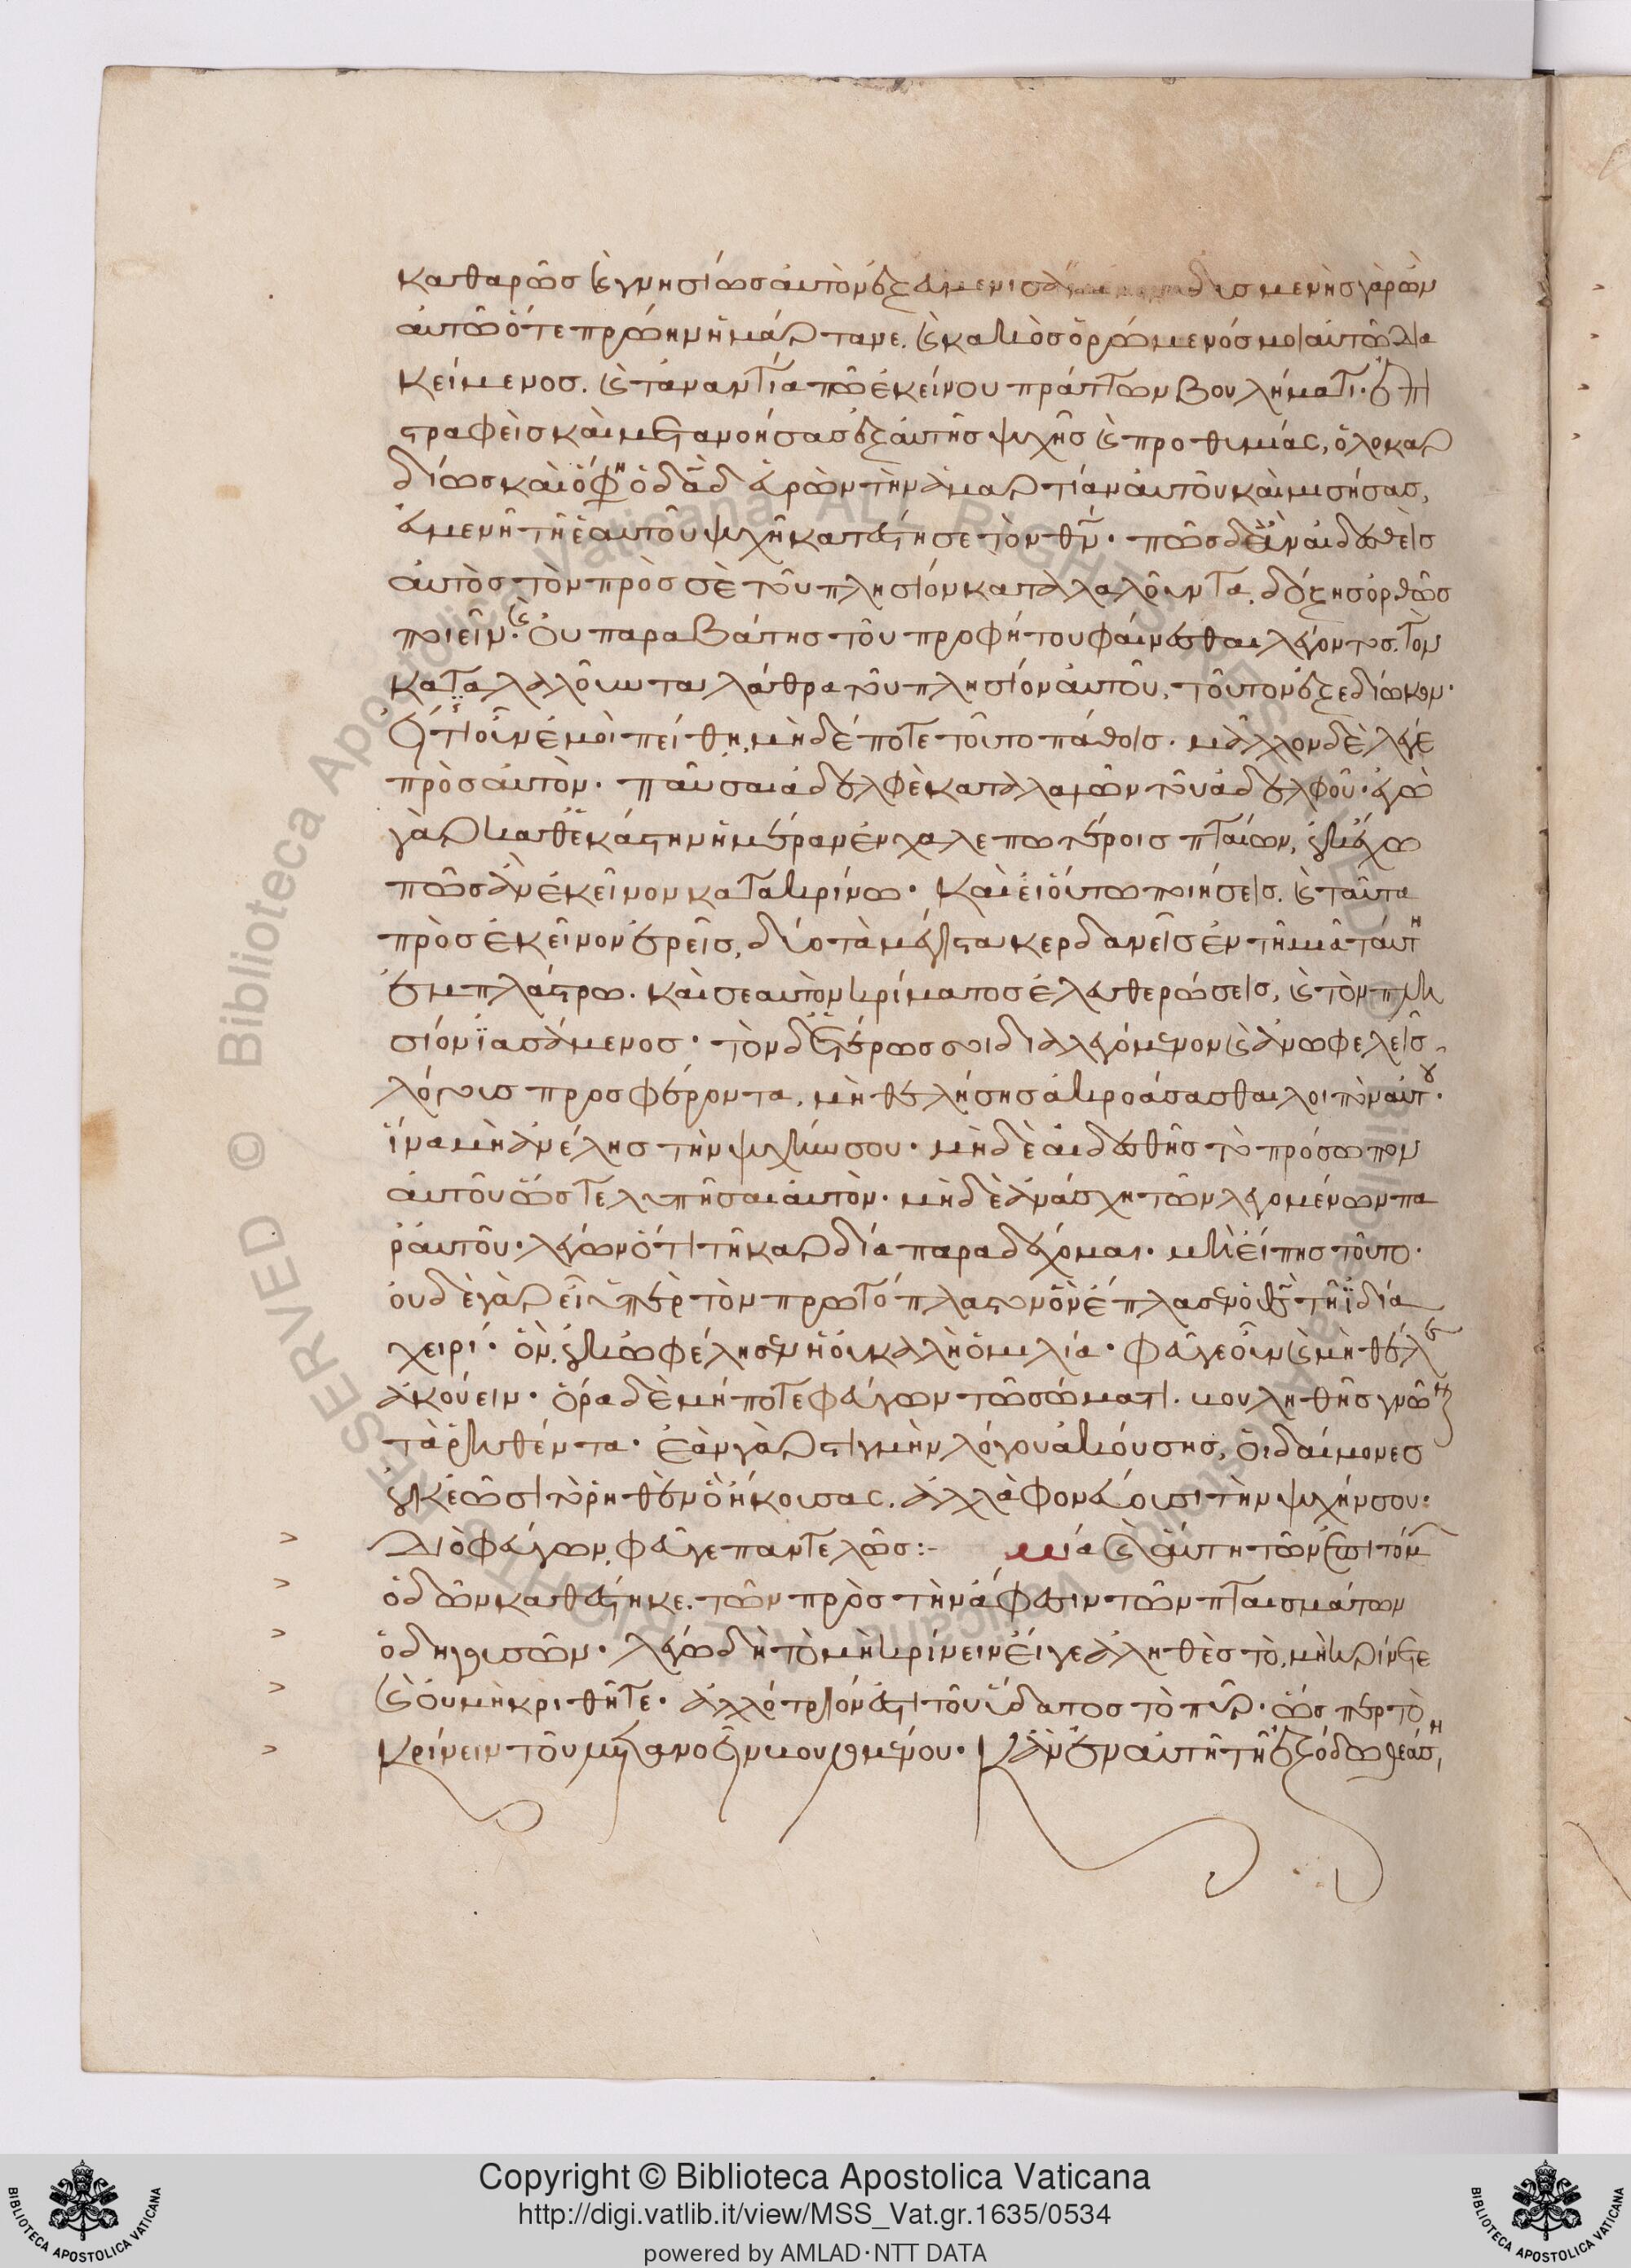 καθαρῶς καὶ γνησίως αὐτὸν ἐξευμενισά
αὐτῶ ὅτε πρώην ἡμάρτανε. καὶ κακὸς ὁρώμενός μοι αὐτῶ δια
κείμενος. καὶ τἀναντία τῶ ἐκείνου πράττων βουλήματι. ἐπι
στραφεὶς καὶ μετανοήσας ἐξ αὐτῆς ψυχῆς καὶ προθυμίας, ὁλοκαρ
δίως καὶ τὴν ἁμαρτίαν αὐτοῦ καὶ μισήσας,
εὐμενῆ τῆ ἑαυτοῦ ψυχῆ κατέστησε τὸν θν. πῶς δὲ ἂν αἰδεσθεὶς
αὐτὸς τὸν πρὸς σὲ τοῦ πλησίον καταλαλοῦντα, δόξης ὀρθῶς
ποιεῖν. καὶ οὐ παραβάτης τοῦ προφήτου φαίνεσθαι λέγοντος. τὸν
καταλαλοῦντα λάθρα τοῦ πλησίον αὐτοῦ, τοῦτον ἐξεδίωκον.
εἴ τι οὖν ἐμοὶ πείθη, μηδέποτε τοῦτο πάθοις. μᾶλλον δὲ λέγε
πρὸς αὐτὸν. παῦσαι ἀδελφὲ καταλαλῶν τοῦ ἀδελφοῦ. ἐγὼ
γὰρ καθεκάστην ἡμέραν ἐν χαλεπωτέροις πταίων, οὐκ ἔχω
πῶς ἂν ἐκεῖνον κατακρίνω. καὶ εἰ οὕτω ποιήσεις. καὶ ταῦτα
πρὸς ἐκεῖνον ἐρεῖς, δύο τὰ μέγιστα κερδανεῖς ἐν τῆ μιᾶ ταύτη
ἐμπλάστρω. καὶ σεαυτὸν κρίματος ἐλευθερώσεις, καὶ τὸν πλη
σίον ἰασάμενος. τὸν δὲ ἑτέρως σοι διαλεγόμενον καὶ ἀνωφελεῖς
λόγους προσφέροντα, μὴ θελήσης ἀκροάσασθαι λοιπὸν αὐτοῦ.
ἵνα μὴ ἀνέλης τὴν ψυχήν σου. μηδὲ αἰδεσθῆς τὸ πρόσωπον
αὐτοῦ ὥστε λυπῆσαι αὐτὸν. μηδὲ ἀνάσχη τῶν λεγομένων πα
ρ' αὐτοῦ. λέγων ὅτι τῆ καρδία παραδέχομαι. μὴ εἴπης τοῦτο.
οὐδὲ γὰρ εἶ ὑπὲρ τὸν πρωτόπλαστον ὃν ἔπλασεν ὁ θς τῆ ἰδία
χειρί. ὃν οὐκ ὠφέλησεν ἡ οὐ καλὴ ὁμιλία. φεῦγε οὖν καὶ μὴ θέλε
ἀκούειν. ὅρα δὲ μήποτε φεύγων τῶ σώματι. βουληθῆς γνῶναι
τὰ ῥηθέντα. ἐὰν γὰρ στιγμὴν λόγου ἀκούσης, οἱ δαίμονες
οὐκ ἐῶσι τὸ ῥηθὲν ὃ ἤκουσας. ἀλλὰ φονεύουσι τὴν ψυχήν σου.
Διὸ φεύγων, φεῦγε παντελῶς :- μία καὶ αὕτη τῶν συντόμων
ὁδῶν καθέστηκε. τῶν πρὸς τὴν ἄφεσιν τῶν πταισμάτων
ὁδηγουσῶν. λέγω δὴ τὸ μὴ κρίνειν εἴγε ἀληθὲς τὸ, μὴ κρίνετε
καὶ οὐ μὴ κριθῆτε. ἀλλότριόν ἐστι τοῦ ὕδατος τὸ πῦρ. ὥσπερ τὸ
κρίνειν τοῦ μετανοεῖν βουλομένου. κἂν ἐν αὐτῆ τῆ ἐξόδω θεάση
Copyright © Biblioteca Apostolica Vaticana
http://digi.vatlib.it/view/MSS_Vat.gr.1635/0534
powered by AMLAD·NTT DATA
BIBLIOTECA APOSTOLICA VATICANA
BIBLIOTECA APOSTOLICA VATICANA